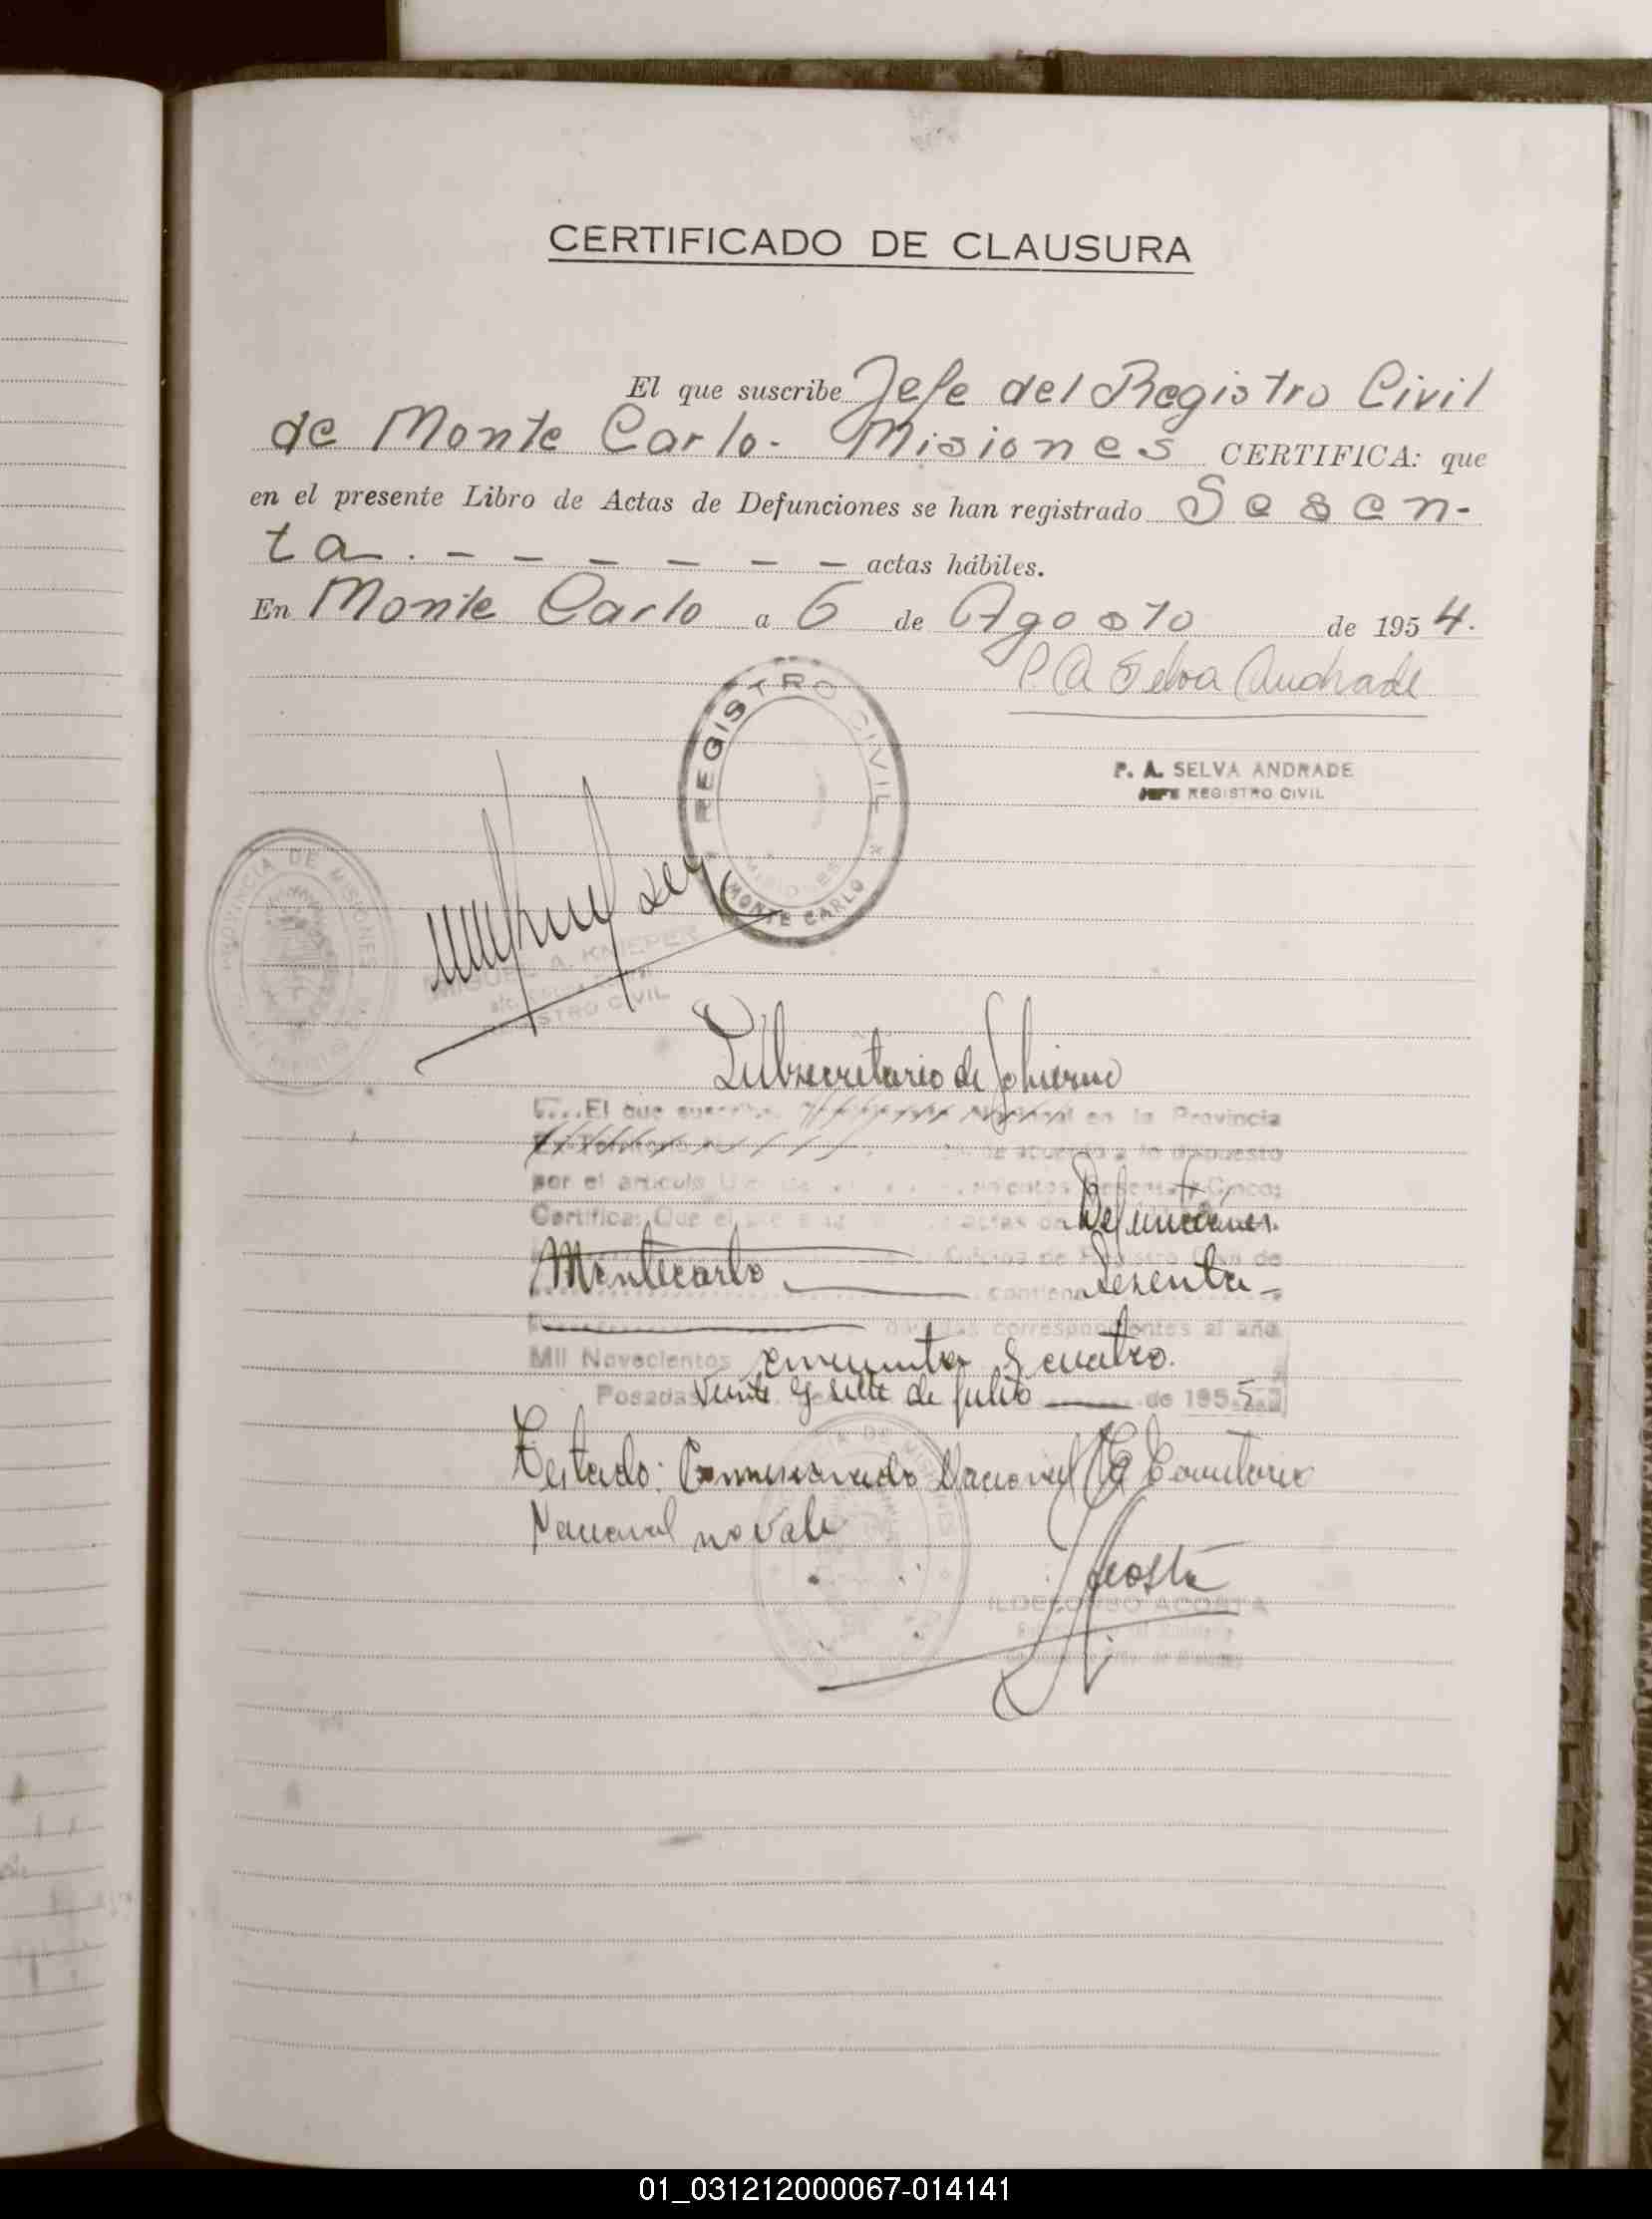 CERTIFICADO DE CLAUSURA
El que suscribe Jefe del Registro Civil
de Monte Carlo - Misiones CERTIFICA: que
en el presente Libro de Actas de Defunciones se han registrado Sesen-
ta. - - - - - - actas hábiles.
En Monte Carlo a 6 de Agosto de 1954.
P. A Selva Andrade
REGISTRO CIVIL
MISIONES
MONTE CARLO
P. A. SELVA ANDRADE
JEFE REGISTRO CIVIL
PROVINCIA DE MISIONES
MIGUEL A. KNIEPER
REGISTRO CIVIL
Subsecretario de Gobierno
El que suscribe, Nacional en la Provincia
de acuerdo a lo dispuesto
por el artículo Sesenta y Cinco:
Certifica: Que el de actas de Defunciones.
Oficina de Registro Civil de
Montecarlo contiene Sesenta
correspondientes al año
Mil Novecientos cincuenta y cuatro.
Posadas, veinte y siete de Julio de 1955
Testado: Comisionado Nacional Ex Territorio
Nacional no vale
Acosta
ILDEFONSO ACOSTA
01_031212000067-014141